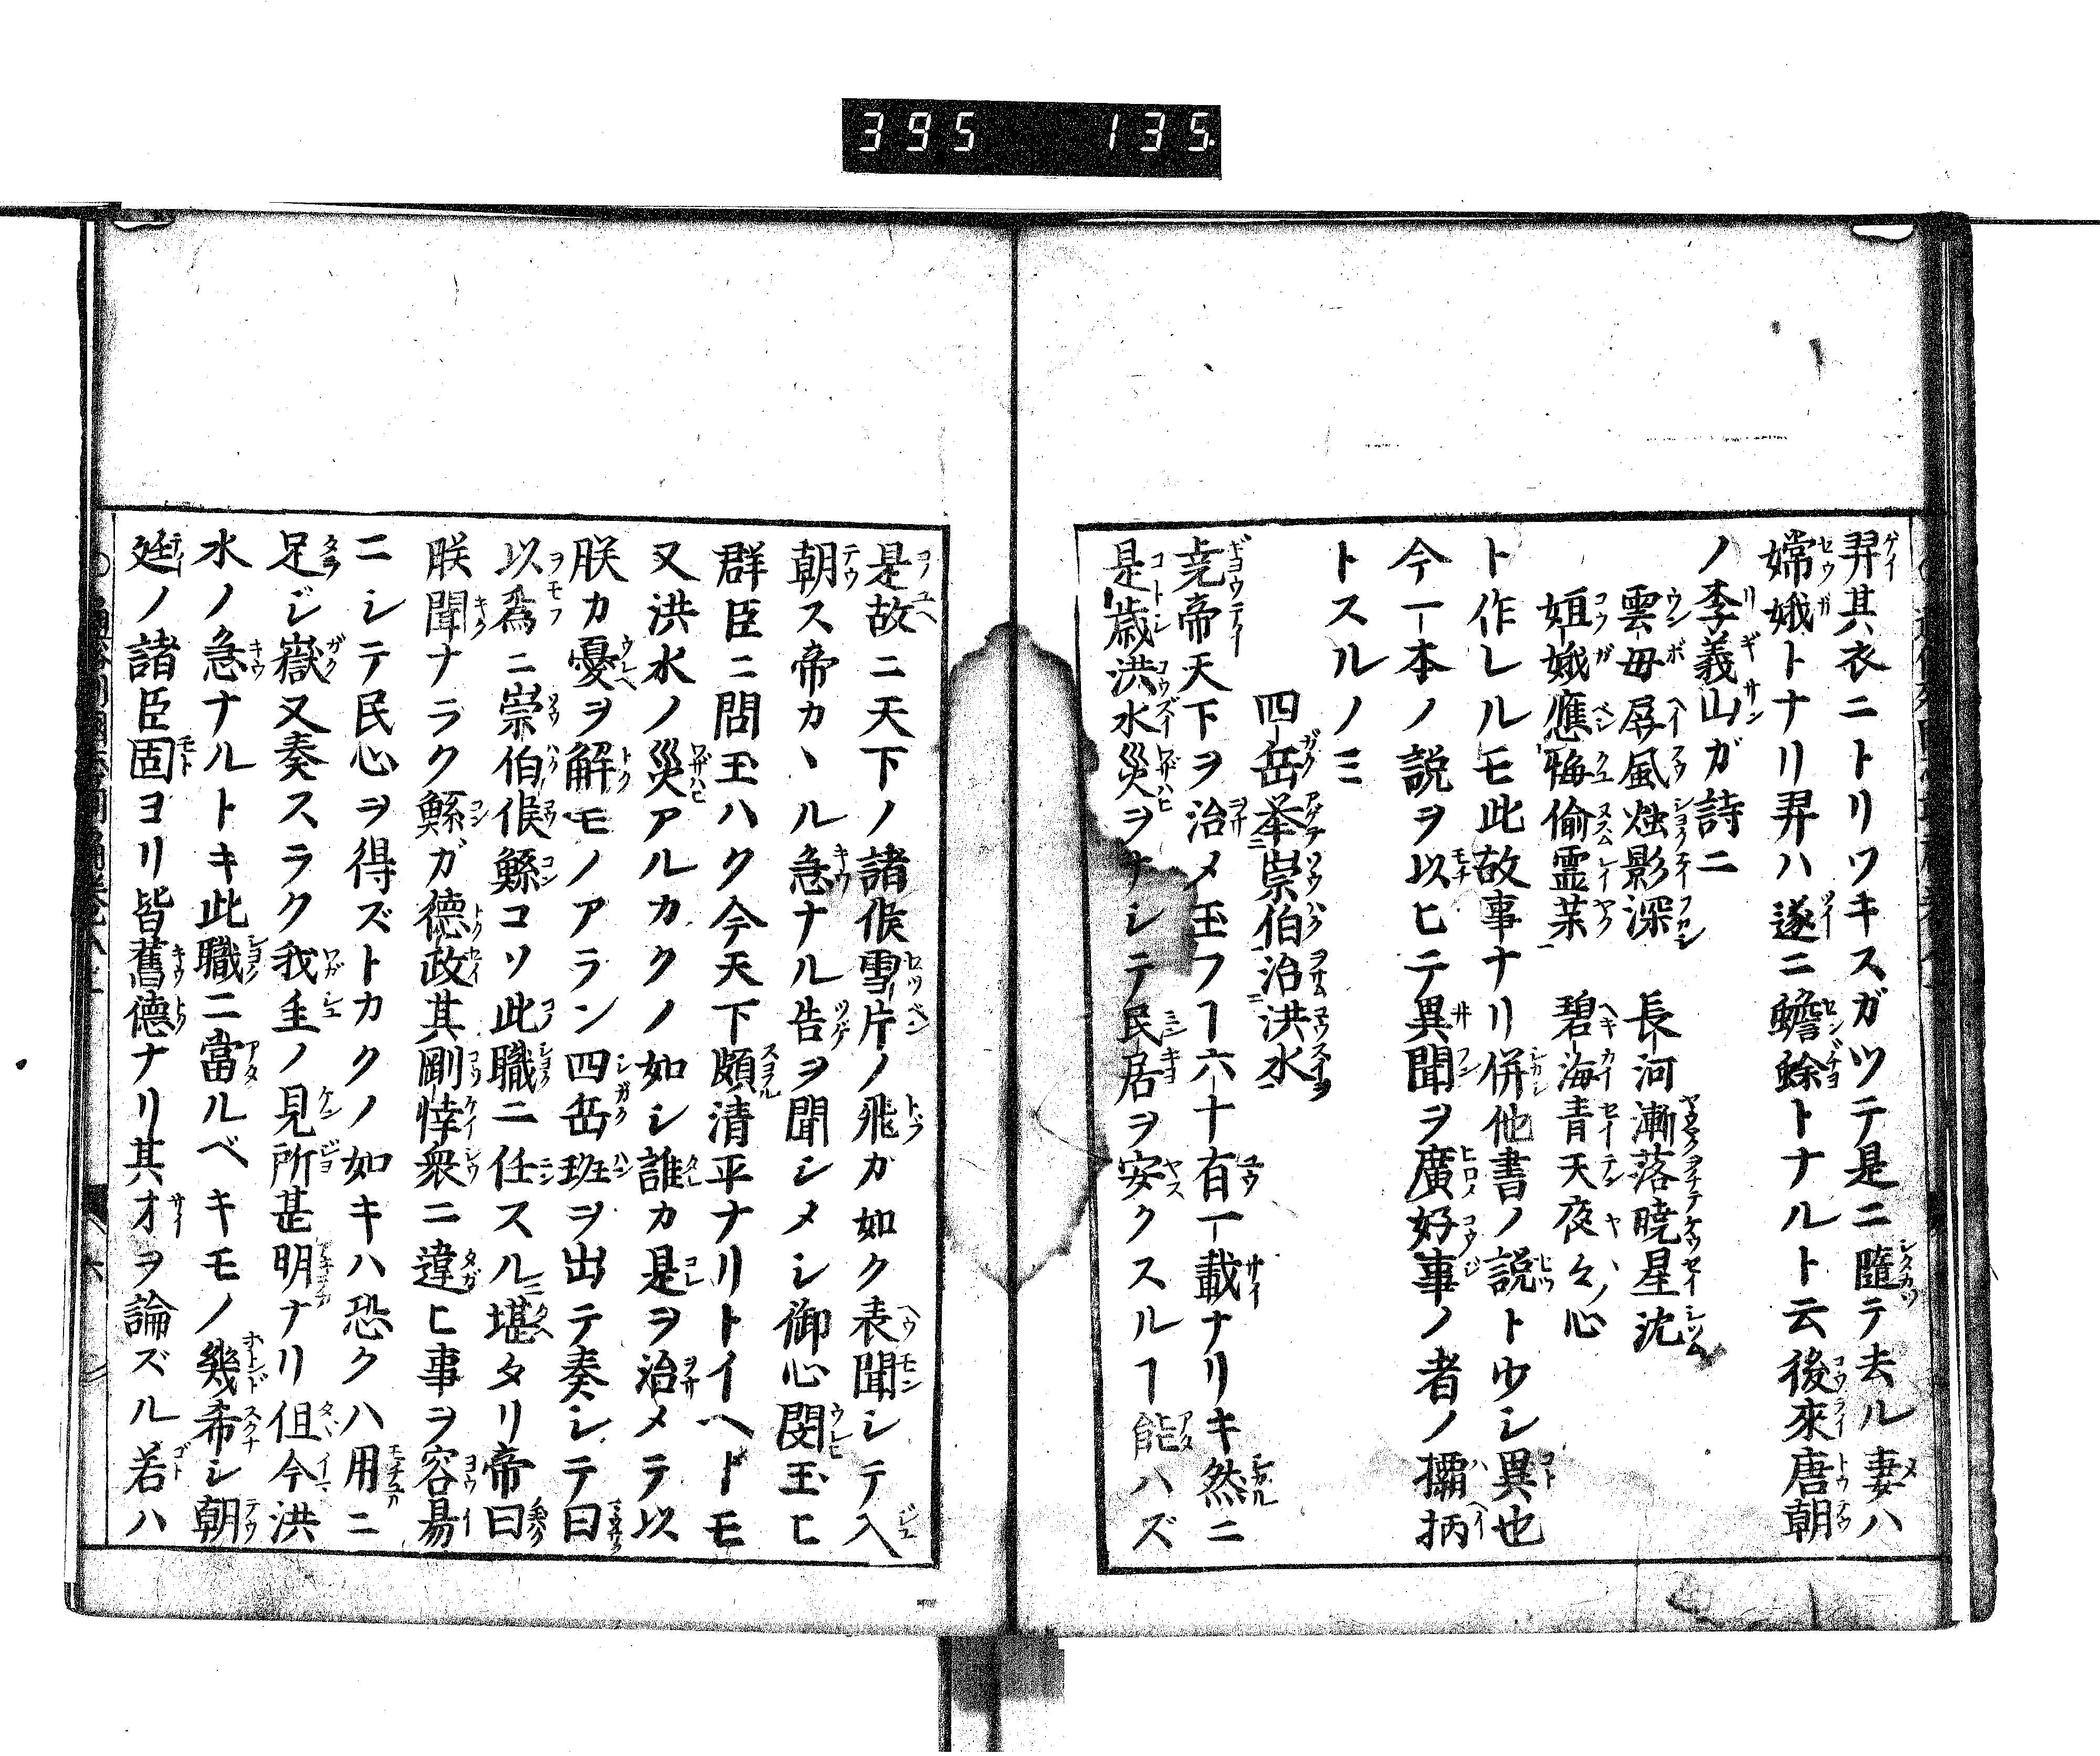 395 135
羿其衣ニトリワキスガツテ是ニ隨テ去ル妻ハ
嫦娥トナリ羿ハ遂ニ蟾蜍トナルト云後來唐朝
ノ李義山ガ詩ニ
雲母屏風燭影深 長河漸落曉星沈
姮娥應悔偷霊薬 碧海青天夜々心
ト作レルモ此故事ナリ併他書ノ説トウシ異也
今一本ノ説ヲ以ヒテ異聞ヲ廣好事ノ者ノ欛柄
トスルノミ
四岳挙崇伯治洪水
尭帝天下ヲ治メ玉フヿ六十有一載ナリキ然ニ
是歳洪水災ヲナシテ民居ヲ安クスルヿ能ハズ
是故ニ天下ノ諸侯雪片ノ飛カ如ク表聞シテ入
朝ス帝カヽル急ナル告ヲ聞シメシ御心閔玉ヒ
群臣ニ問玉ハク今天下頗清平ナリトイヘドモ
又洪水ノ災アルカクノ如シ誰カ是ヲ治メテ以
朕カ憂ヲ解モノアラン四岳班ヲ出テ奏シテ曰
以為ニ崇伯侯鯀コソ此職ニ任スルニ堪タリ帝曰
朕聞ナラク鯀ガ德政其剛悻衆ニ違ヒ事ヲ容易
ニシテ民心ヲ得ズトカクノ如キハ恐クハ用ニ
足ジ嶽又奏スラク我主ノ見所甚明ナリ但今洪
水ノ急ナルトキ此職ニ當ルベキモノ幾希シ朝
廷ノ諸臣固ヨリ皆舊德ナリ其才ヲ論ズル若ハ